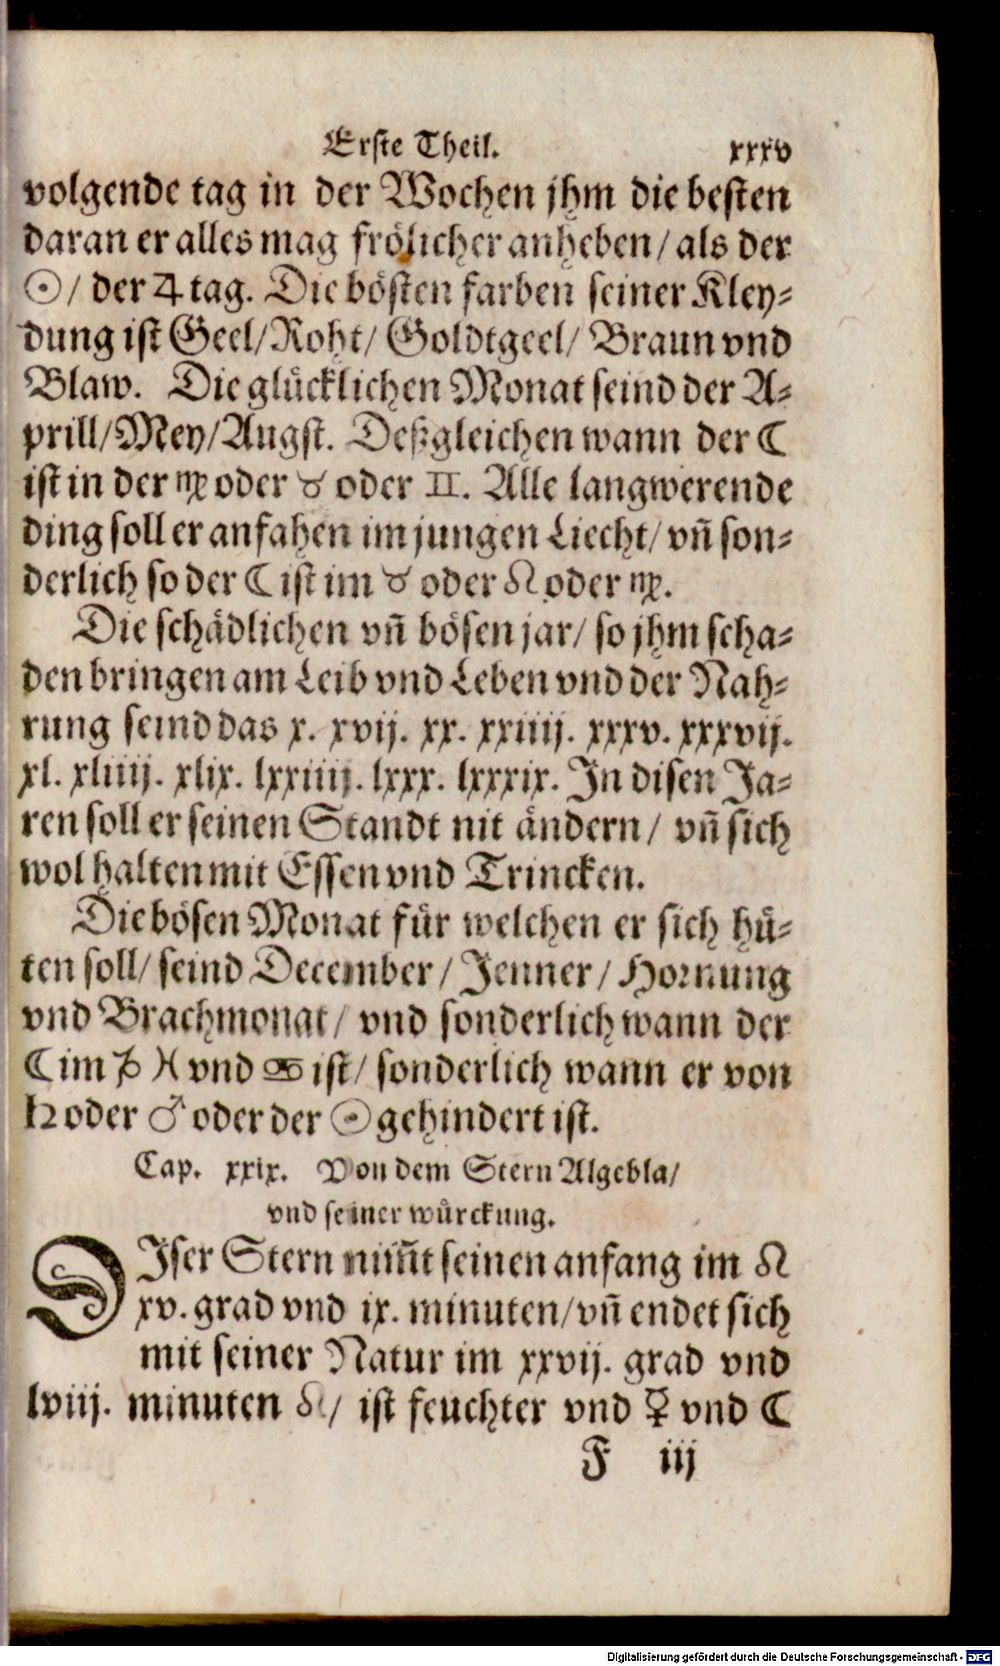 Erste Theil. xxxv
volgende tag in der Wochen jhm die besten
daran er alles mag frölicher anheben/ als der
☉/ der ♃ tag. Die bösten farben seiner Kley⸗
dung ist Geel/Roht/ Goldtgeel/ Braun vnd
Blaw. Die glücklichen Monat seind der A⸗
prill/Mey/Augst. Deßgleichen wann der ☾
ist in der ♍ oder ♉ oder ♊. Alle langwerende
ding soll er anfahen im jungen Liecht/ vn̄ son⸗
derlich so der ☾ ist im ♉ oder ♌ oder ♍.
Die schädlichen vn̄ bösen jar/ so jhm scha⸗
den bringen am Leib vnd Leben vnd der Nah⸗
rung seind das x. xvij. xx. xxiiij. xxxv. xxxvij.
xl. xliiij. xlix. lxxiiij. lxxx. lxxxix. In disen Ja⸗
ren soll er seinen Standt nit ändern/ vn̄ sich
wol halten mit Essen vnd Trincken.
Die bösen Monat für welchen er sich hü⸗
ten soll/ seind December/ Jenner/ Hornung
vnd Brachmonat/ vnd sonderlich wann der
☾ im ♑ ♓ vnd ♋ ist/ sonderlich wann er von
♄ oder ♂ oder der ☉ gehindert ist.
Cap. xxix. Von dem Stern Algebla/
vnd seiner würckung.
DIser Stern nim̄t seinen anfang im ♌
xv. grad vnd ix. minuten/vn̄ endet sich
mit seiner Natur im xxvij. grad vnd
lviij. minuten ♌/ ist feuchter vnd ♀ vnd ☾
F iij
Digitalisierung gefördert durch die Deutsche Forschungsgemeinschaft - DFG